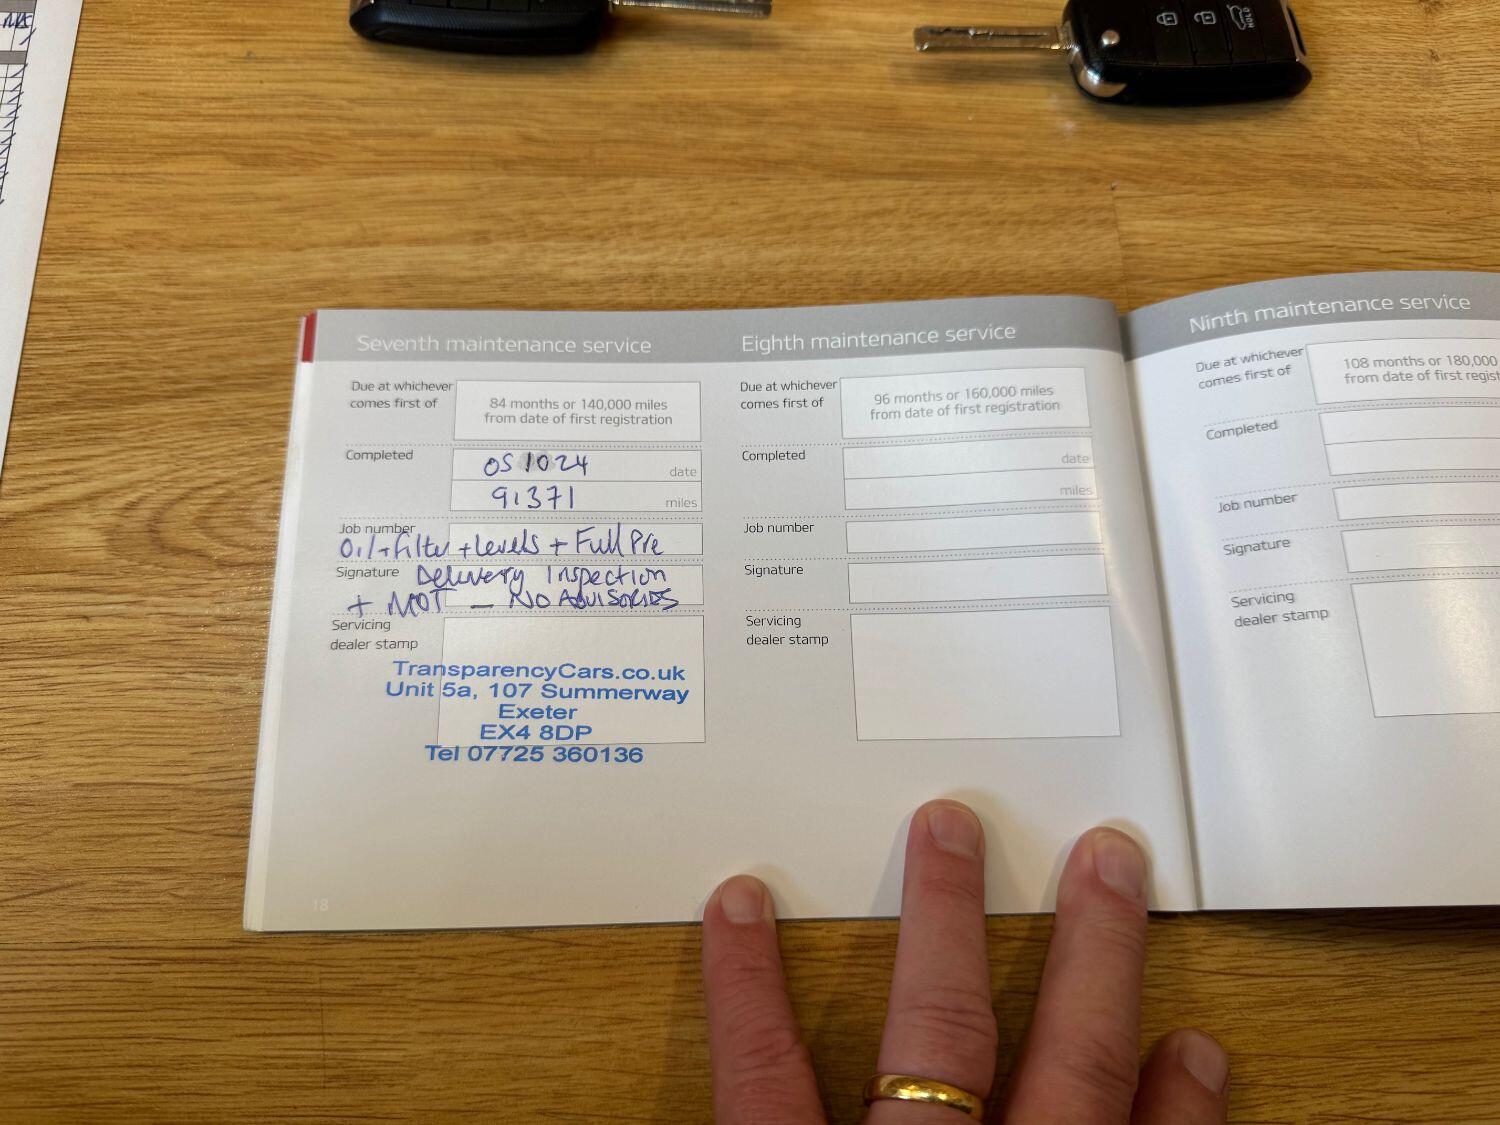 HOLD
Seventh maintenance service
Due at whichever
comes first of
84 months or 140,000 miles
from date of first registration
Completed
05 10 24
date
91371
miles
Job number
Oil + Filter + Levels + Full Pre
Signature
Delivery Inspection
+ MOT - NO ADVISORIES
Servicing
dealer stamp
TransparencyCars.co.uk
Unit 5a, 107 Summerway
Exeter
EX4 8DP
Tel 07725 360136
18
Eighth maintenance service
Due at whichever
comes first of
96 months or 160,000 miles
from date of first registration
Completed
date
miles
Job number
Signature
Servicing
dealer stamp
Ninth maintenance service
Due at whichever
comes first of
108 months or 180,000
from date of first
Completed
Job number
Signature
Servicing
dealer stamp